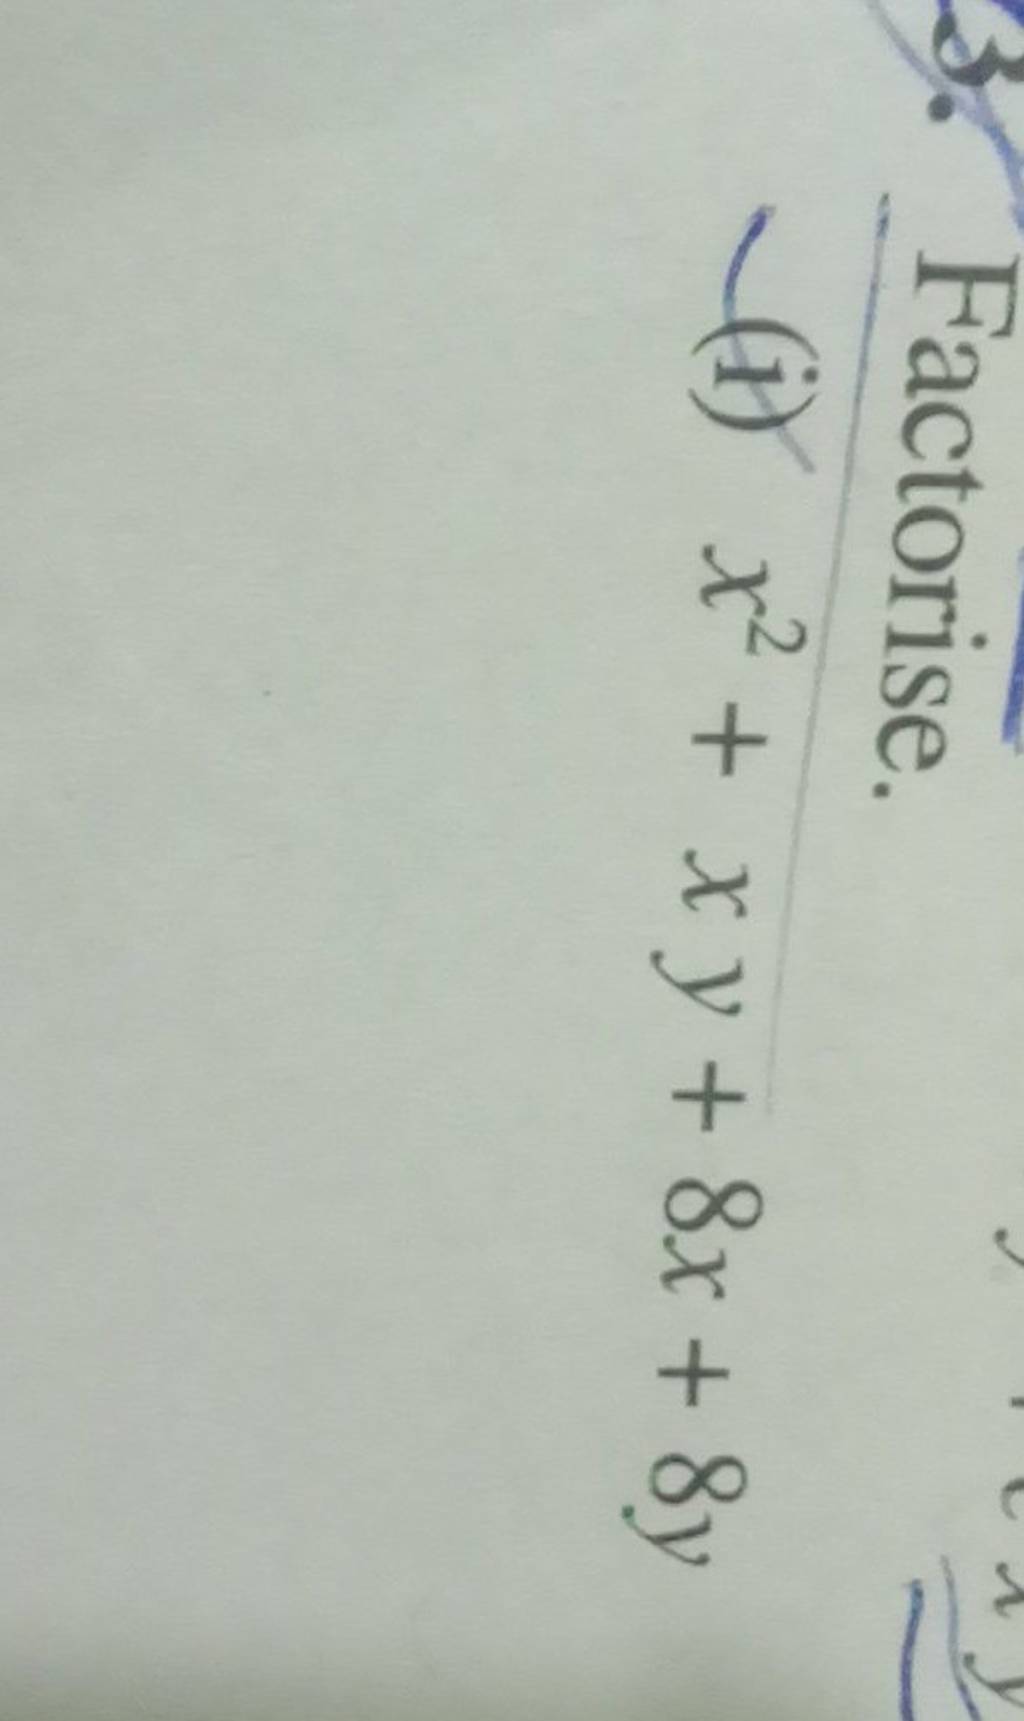 3. Factorise.
(i) x² + x y + 8x + 8y